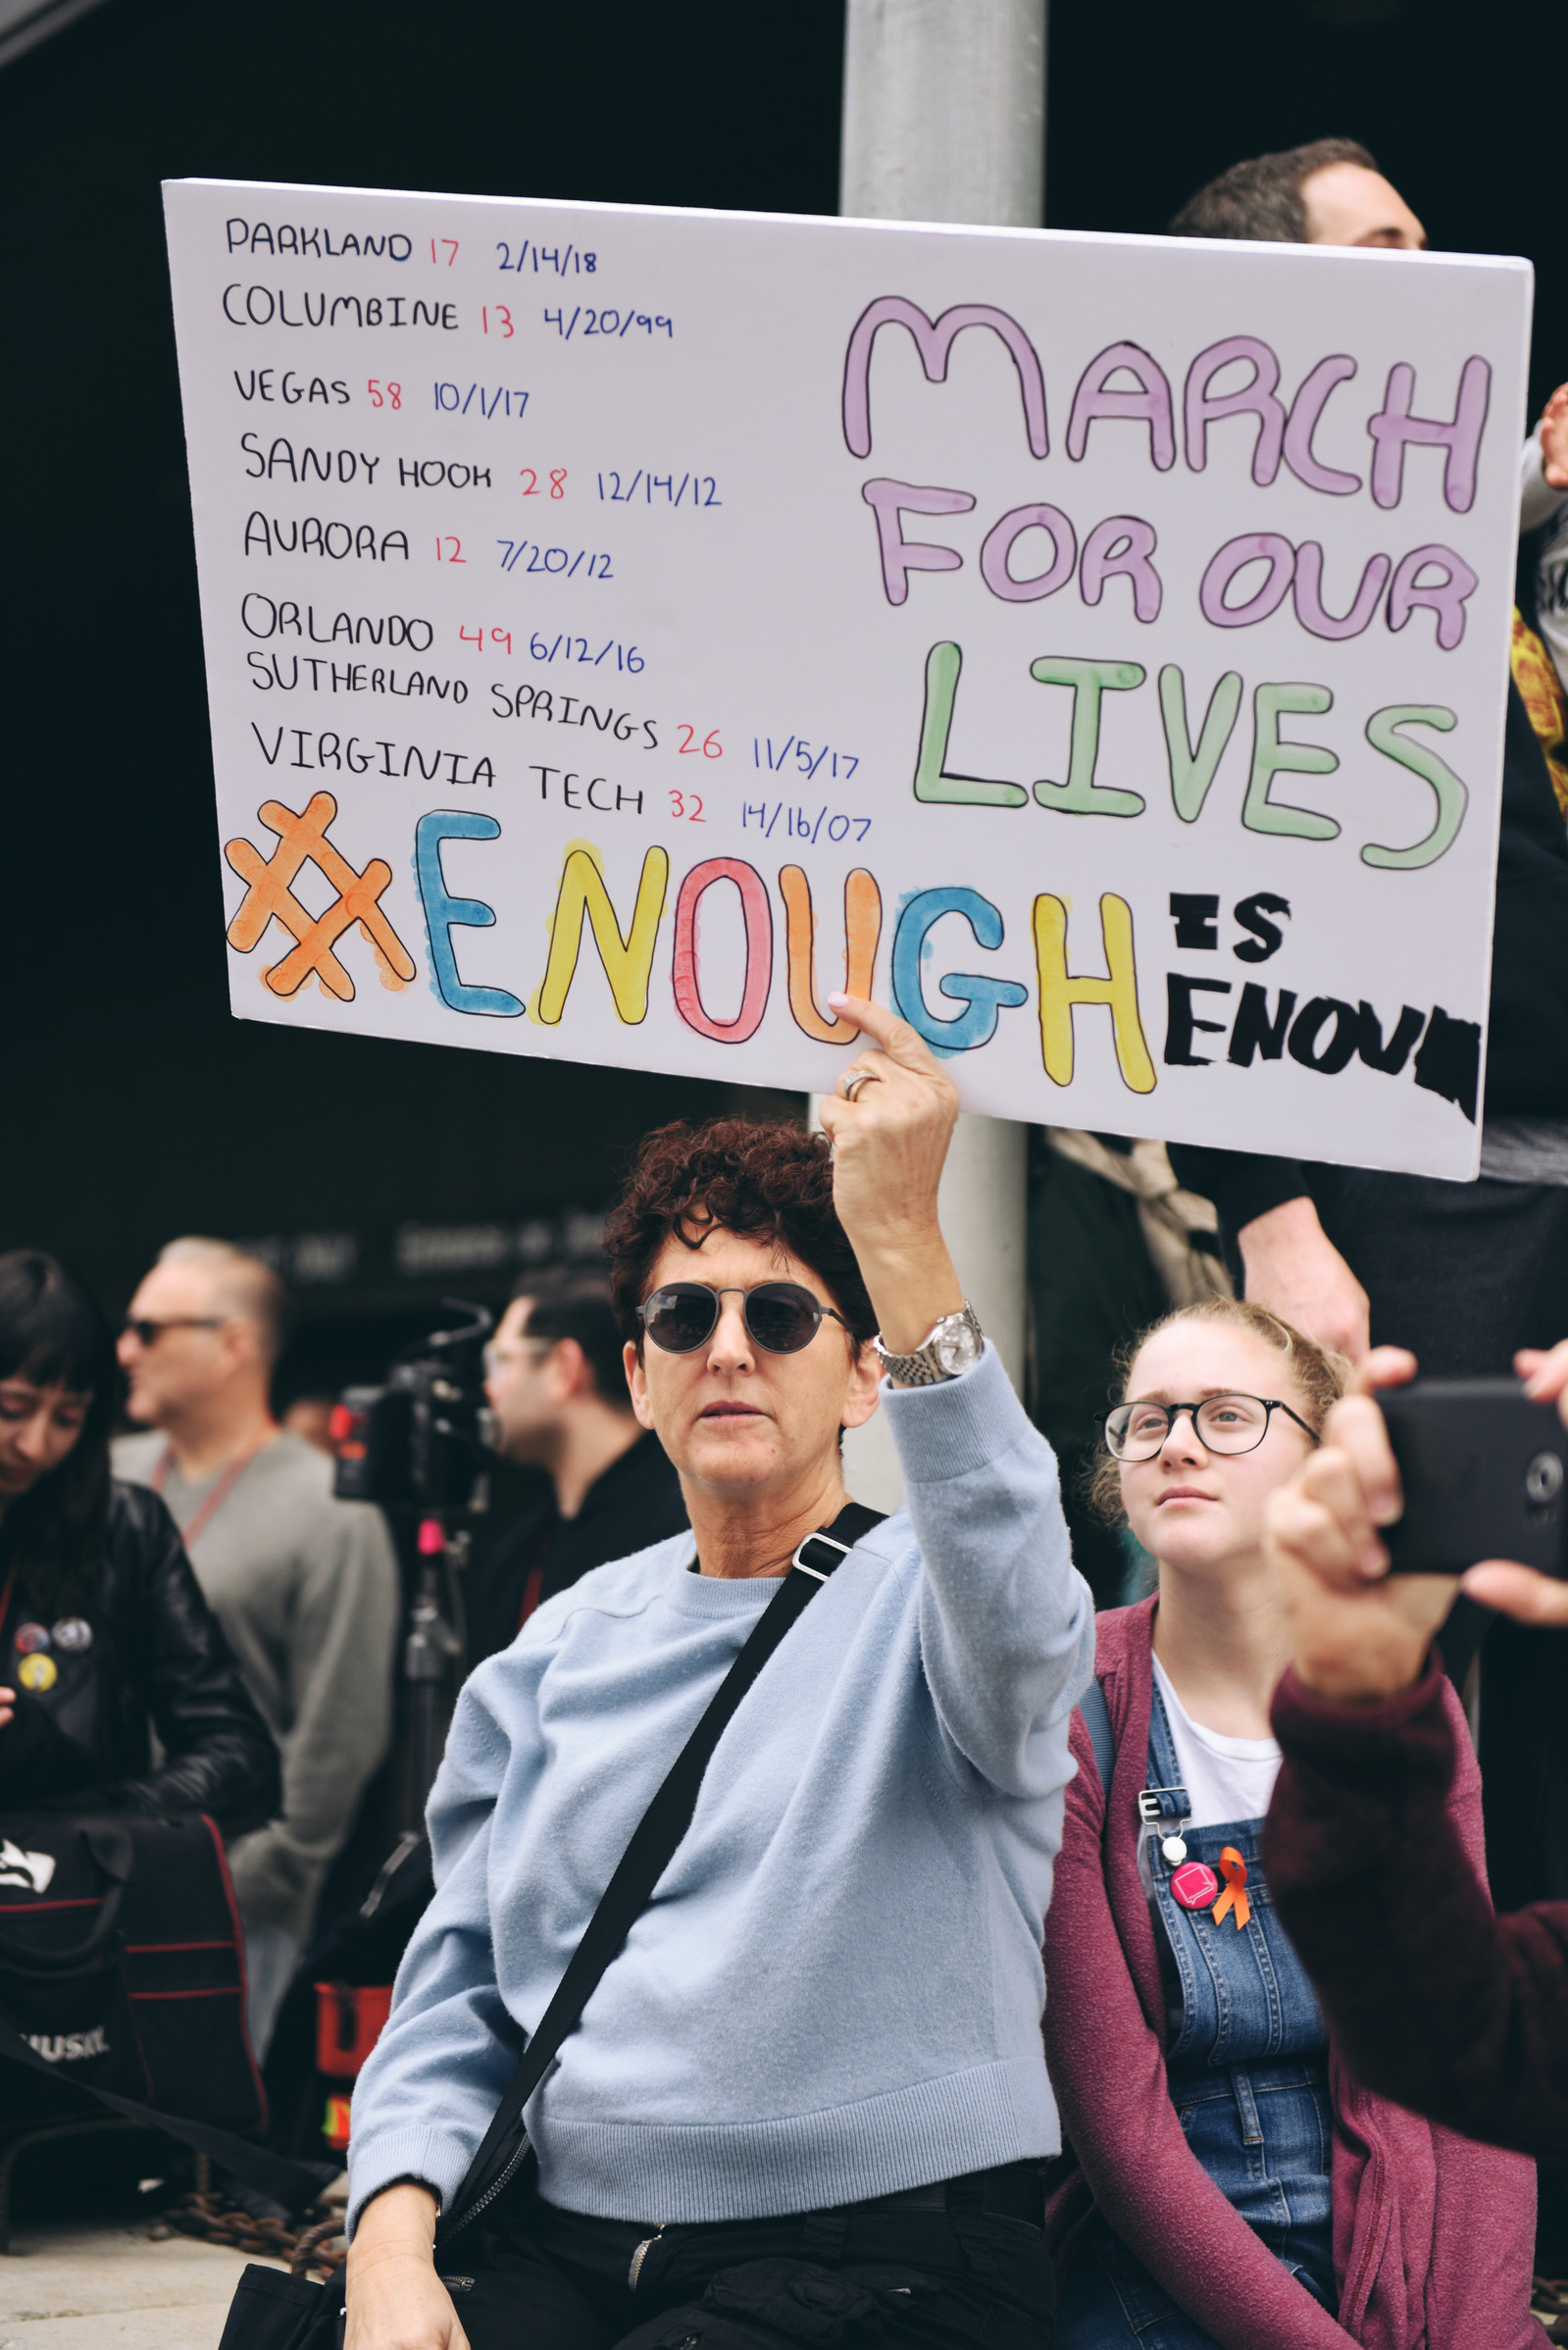 PARKLAND 17 2/14/18
COLUMBINE 13 4/20/99
VEGAS 58 10/1/17
SANDY HOOK 28 12/14/12
AURORA 12 7/20/12
ORLANDO 49 6/12/16
SUTHERLAND SPRINGS 26 11/5/17
VIRGINIA TECH 32 14/16/07
MARCH
FOR OUR
LIVES
#ENOUGH
IS
ENOUH
HUSKY